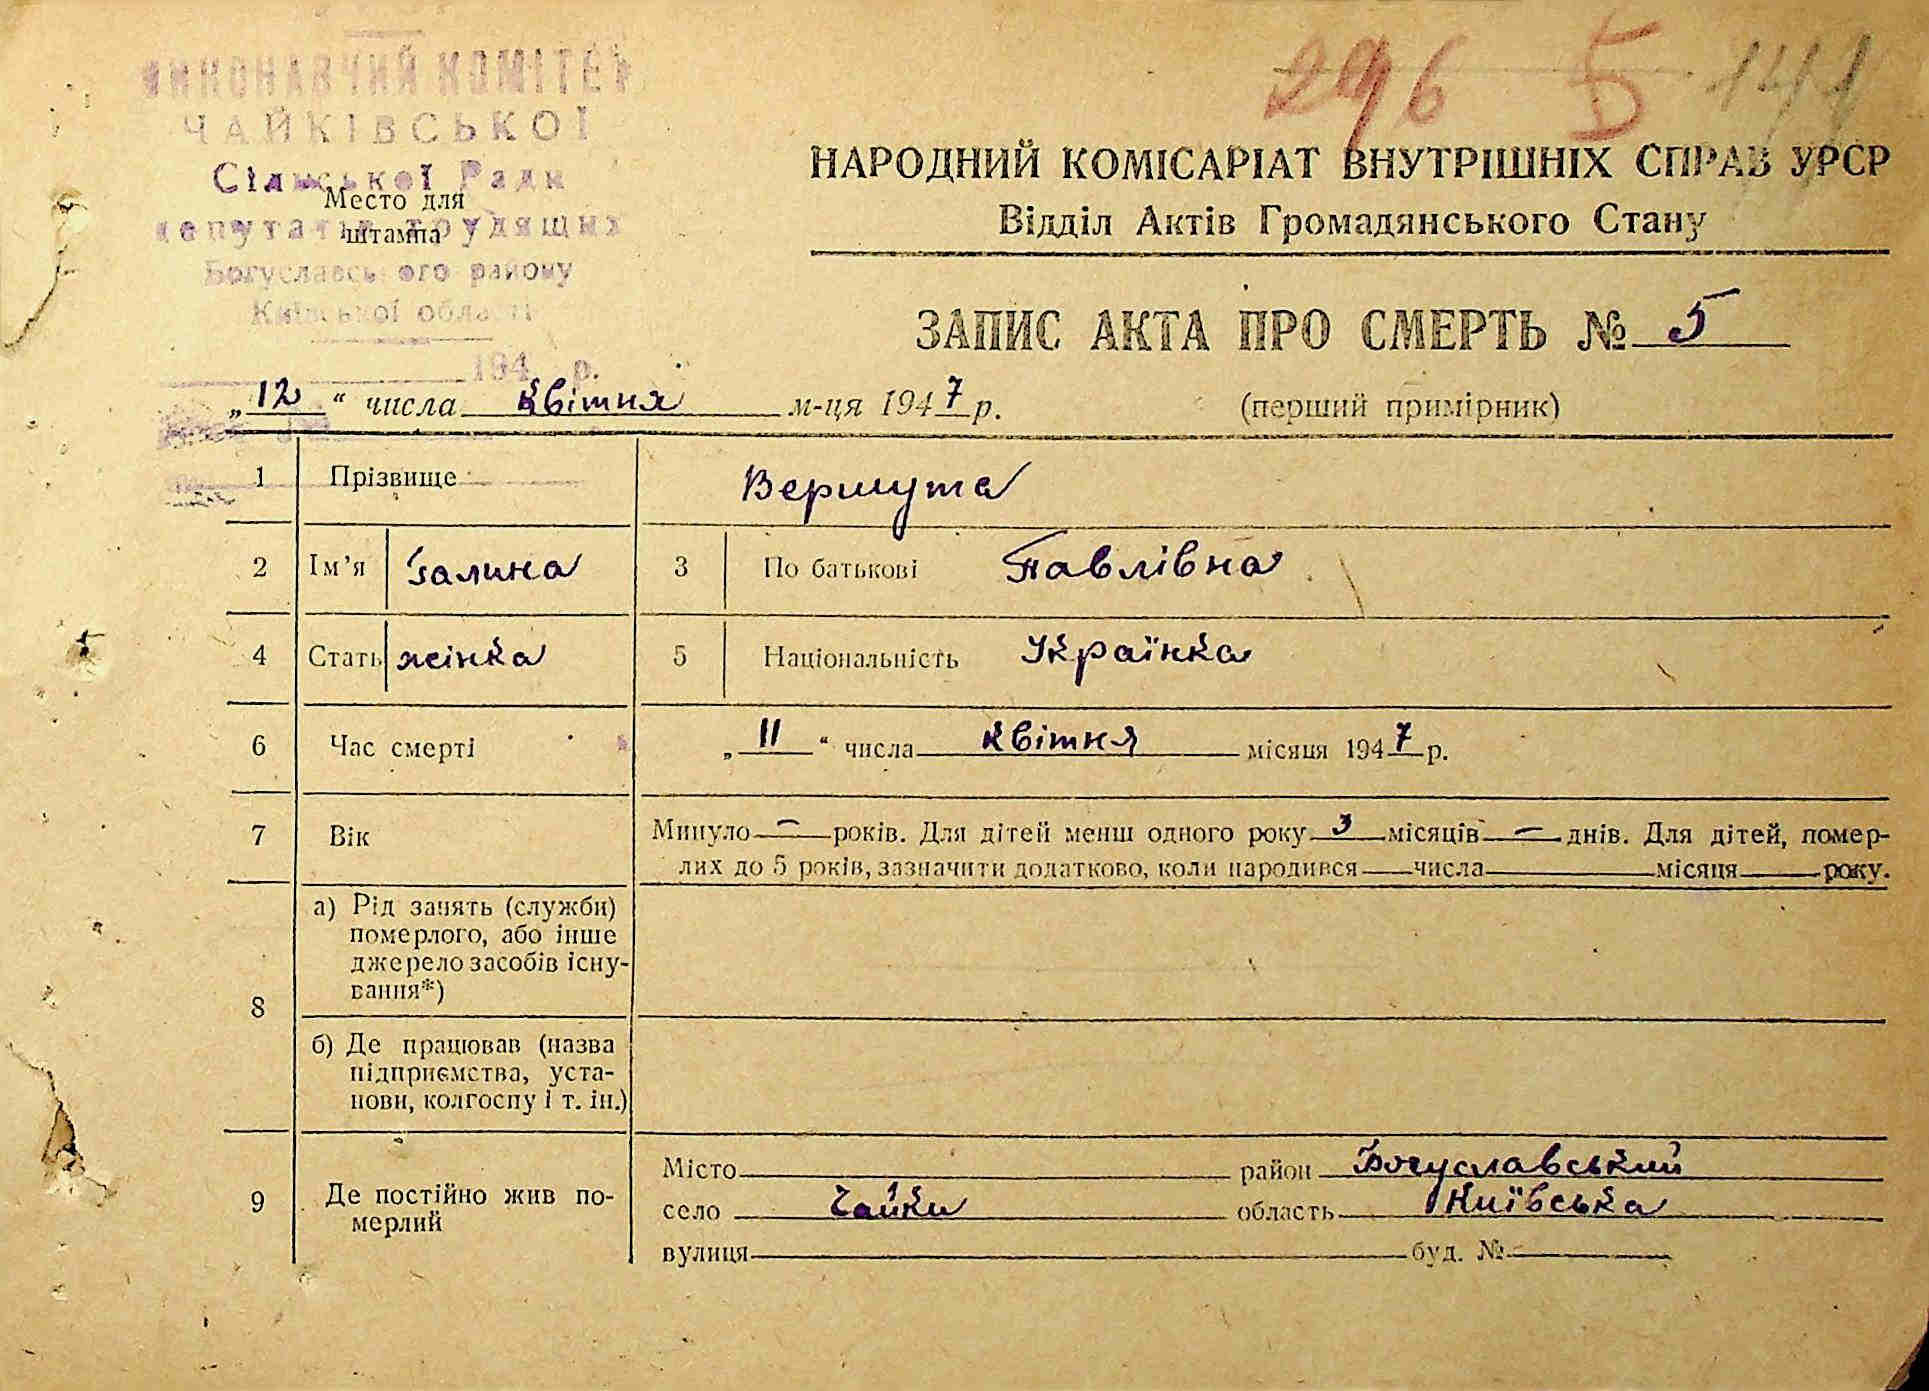 296 5 141
ВИКОНАВЧИЙ КОМІТЕТ
ЧАЙКІВСЬКОЇ
Сільської Ради
депутатів трудящих
Богуславського району
Київської області
194 р.
Место для
штампа
НАРОДНИЙ КОМІСАРІАТ ВНУТРІШНІХ СПРАВ УРСР
Відділ Актів Громадянського Стану
ЗАПИС АКТА ПРО СМЕРТЬ № 5
„12“ числа квітня м-ця 1947 р. (перший примірник)
1 Прізвище Вершута
2 Ім’я Галина 3 По батькові Павлівна
4 Стать жінка 5 Національність Українка
6 Час смерті „11“ числа квітня місяця 1947 р.
7 Вік Минуло — років. Для дітей менш одного року 3 місяців — днів. Для дітей, помер-
лих до 5 років, зазначити додатково, коли народився числа місяця року.
8 а) Рід занять (служби)
померлого, або інше
джерело засобів існу-
вання*)
б) Де працював (назва
підприємства, уста-
нови, колгоспу і т. ін.)
9 Де постійно жив по-
мерлий
Місто район Богуславський
село Чайки область Київська
вулиця буд. №